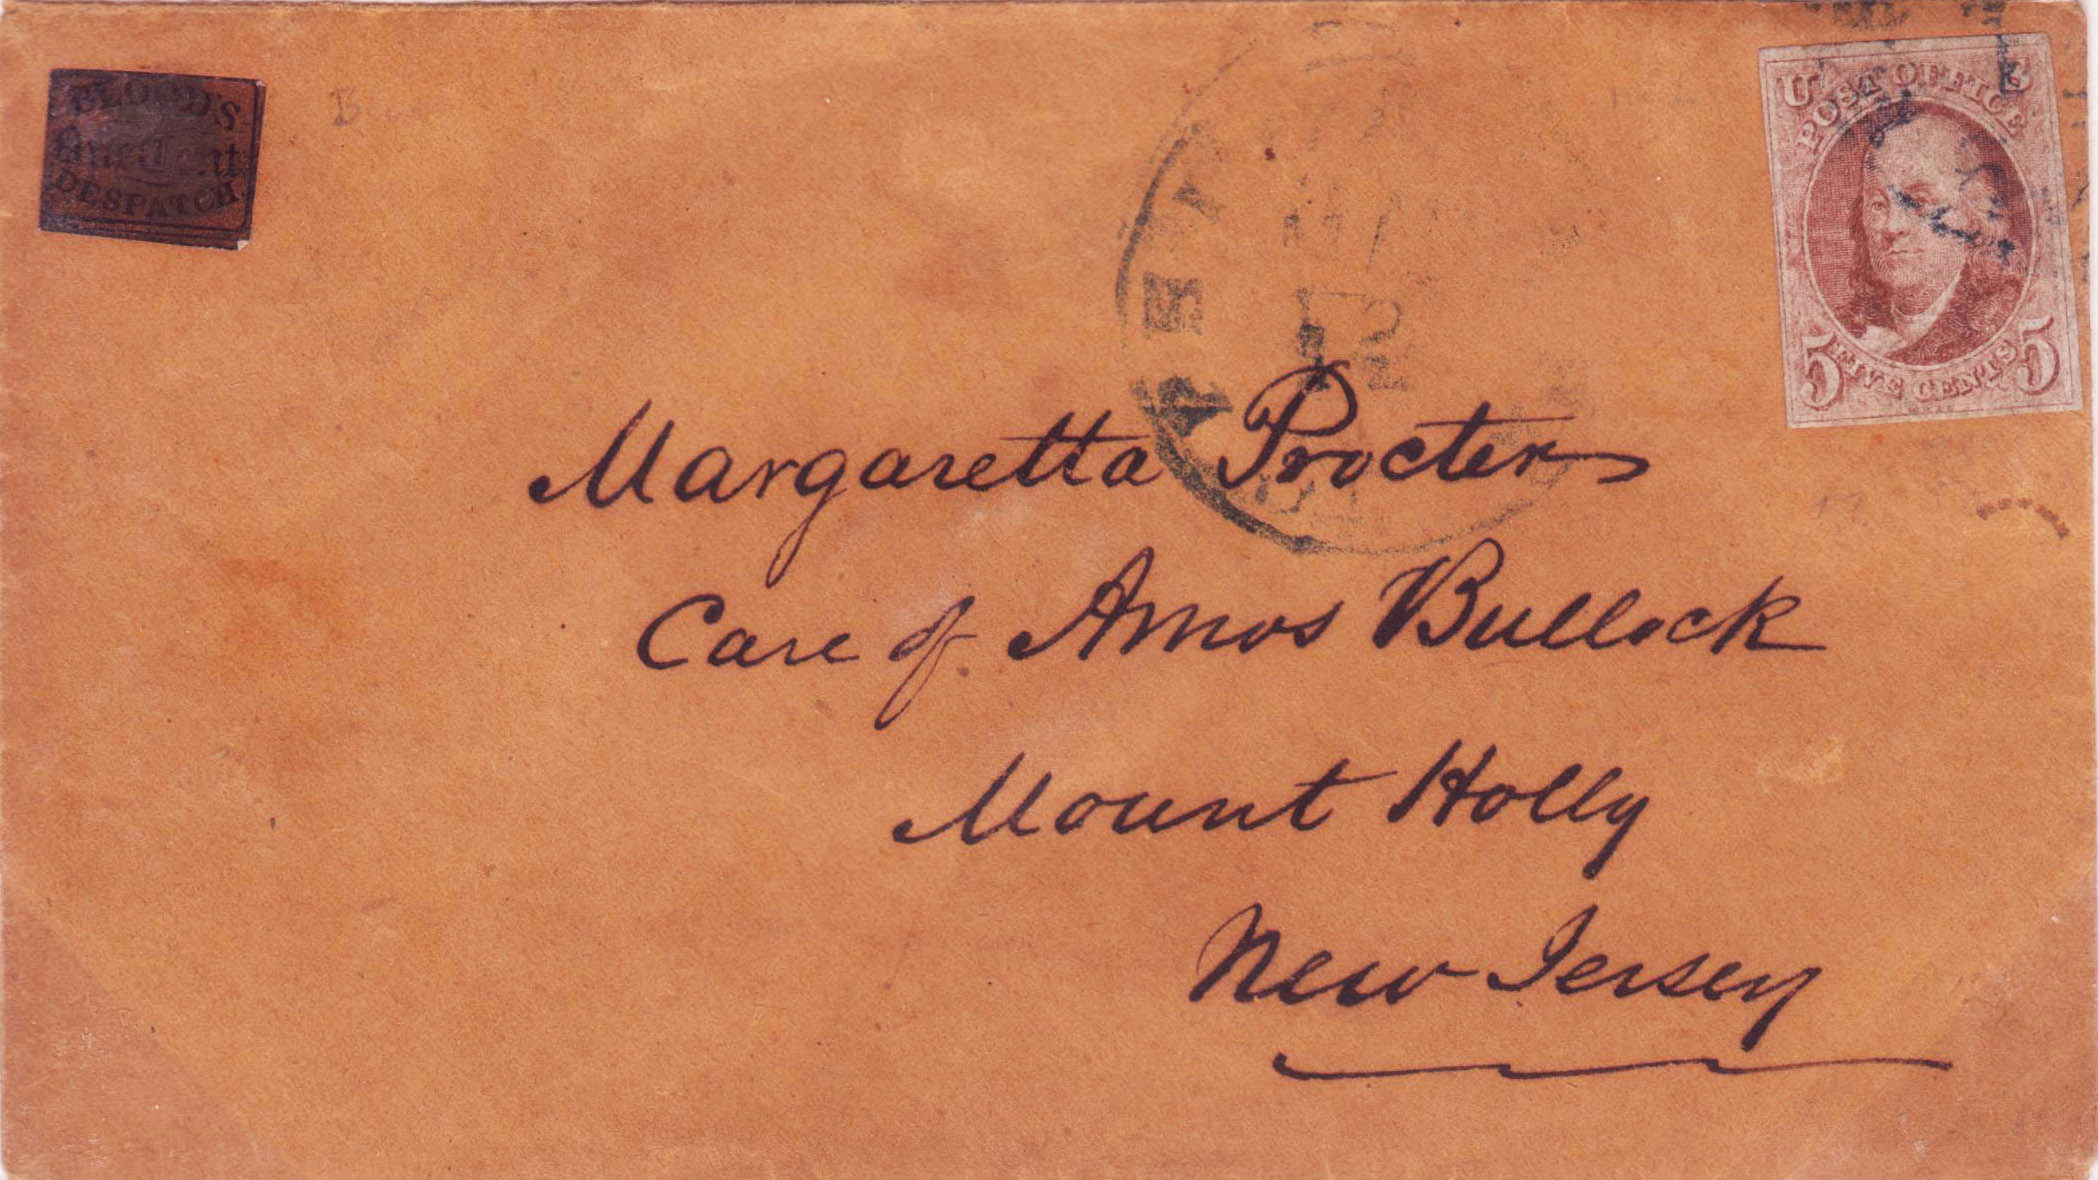 BLOOD'S
DESPATCH.
U S
POST OFFICE
5 FIVE CENTS 5
12
Margaretta Procter
Care of Amos Bullock
Mount Holly
New Jersey